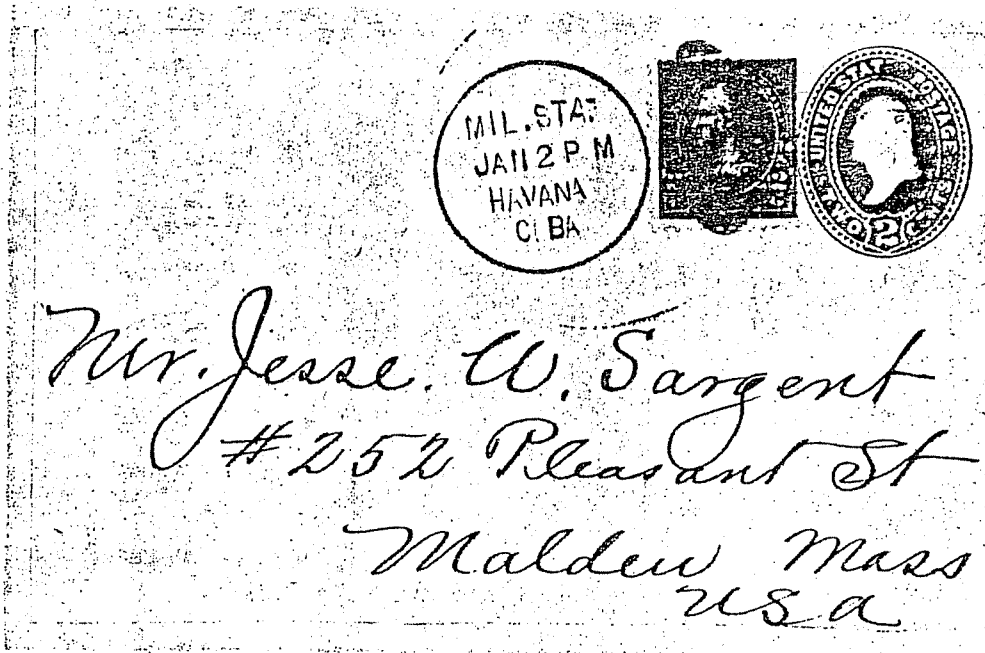 MIL. STA.
JA 11 2 P M
HAVANA
CUBA
UNITED STAT POSTAGE
TWO 2 CENTS
Mr. Jesse. W. Sargent
#252 Pleasant St
Malden Mass
USA